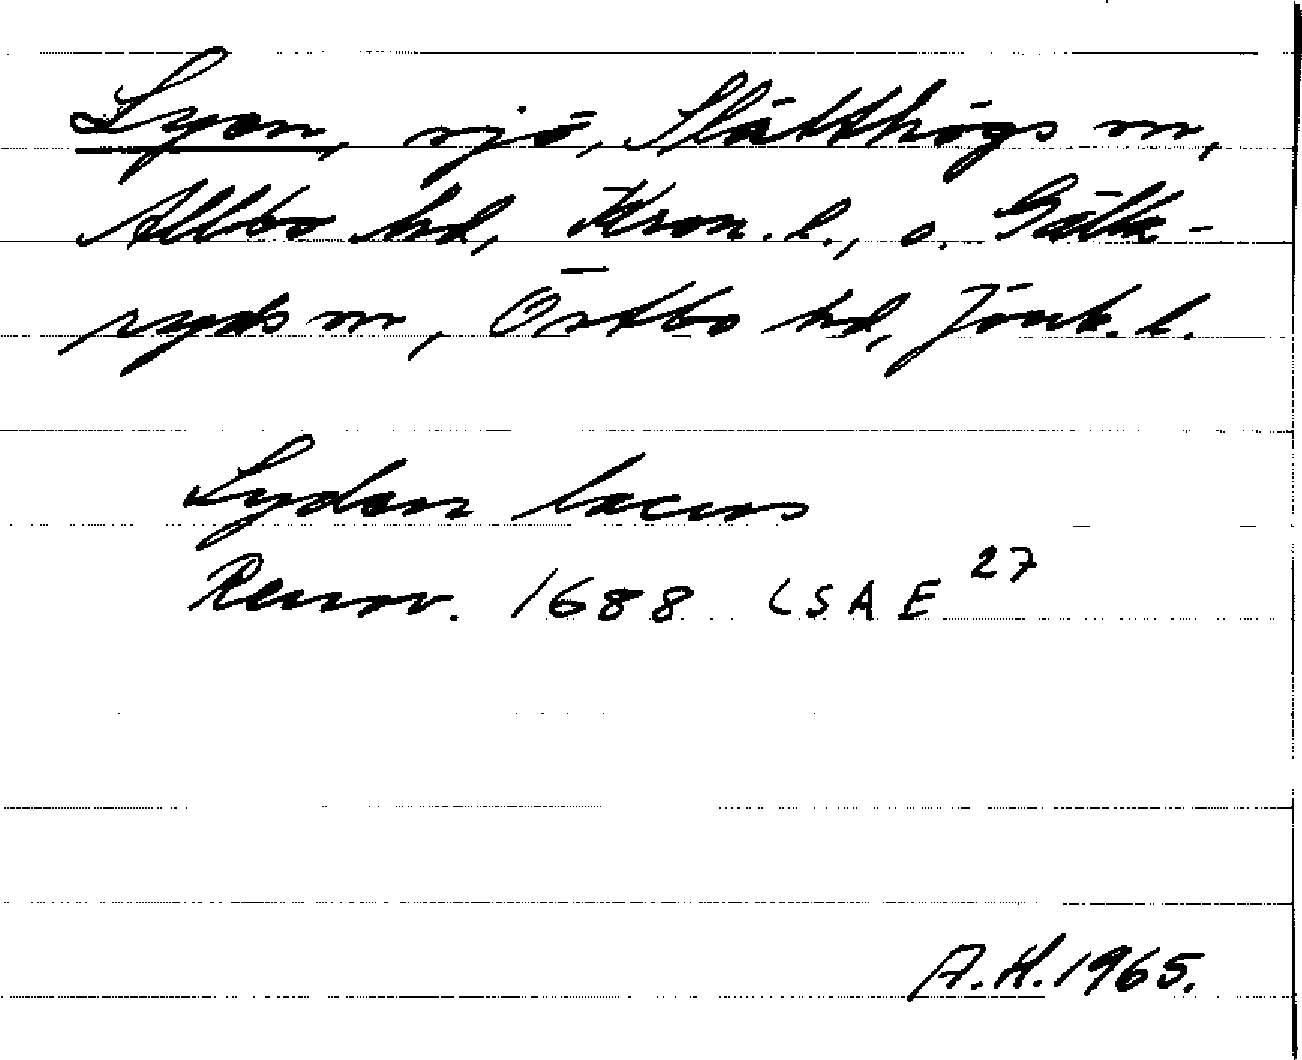 Lyen, sjö, Slätthögs sn,
Allbo hd, Kron. l., o. Gälla-
ryds sn, Östbo hd, Jönk. l.
Lyden lacus
Renov. 1688 LSA E 27
A.H. 1965.